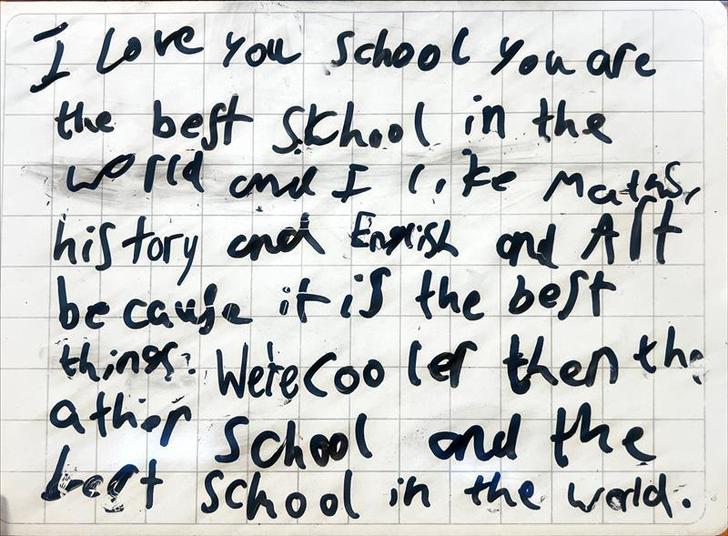 I Love you School you are
the best SKhool in the
world and I like Matas,
history and English and Art
because it is the best
things. We're cooler then the
athir School and the
best School in the world.